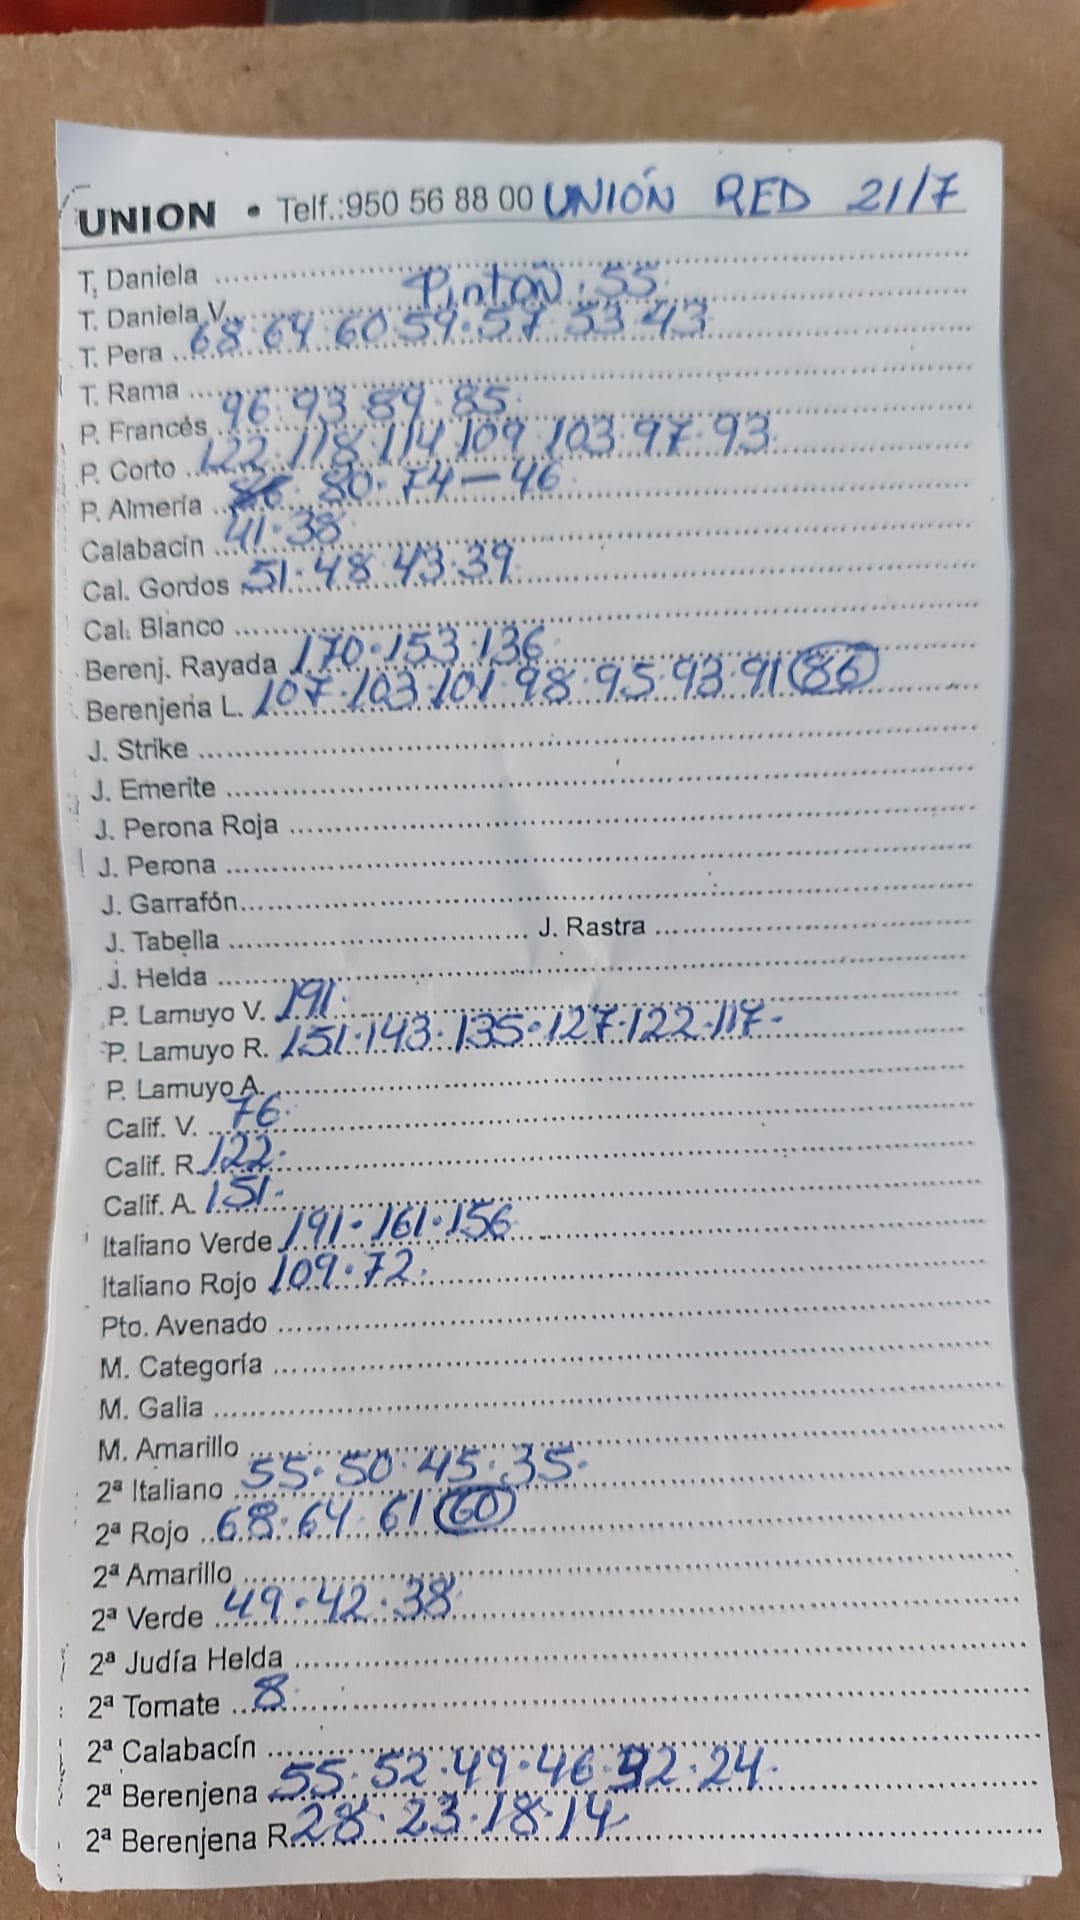 UNION • Telf.:950 56 88 00 UNIÓN RED 21/7
T. Daniela
T. Daniela V. Pintón. 55
T. Pera 68·64·60·59·57·53·43
T. Rama
P. Francés 96·93·89·85·
P. Corto 122·118·114·109·103·97·93·
P. Almería 80·74—46
Calabacín 41·38
Cal. Gordos 51·48·43·39
Cal. Blanco
Berenj. Rayada 170·153·136
Berenjena L. 107·103·101·98·95·93·91 86
J. Strike
J. Emerite
J. Perona Roja
J. Perona
J. Garrafón
J. Tabella J. Rastra
J. Helda
P. Lamuyo V. 191·
P. Lamuyo R. 151·143·135·127·122·117-
P. Lamuyo A.
Calif. V. 76·
Calif. R. 122·
Calif. A. 151·
Italiano Verde 191·161·156
Italiano Rojo 109·72·
Pto. Avenado
M. Categoría
M. Galia
M. Amarillo
2ª Italiano 55·50·45·35·
2ª Rojo 68·64·61 60
2ª Amarillo
2ª Verde 49·42·38
2ª Judía Helda
2ª Tomate 8
2ª Calabacín
2ª Berenjena 55·52·49·46·32·24·
2ª Berenjena R. 28·23·18·14